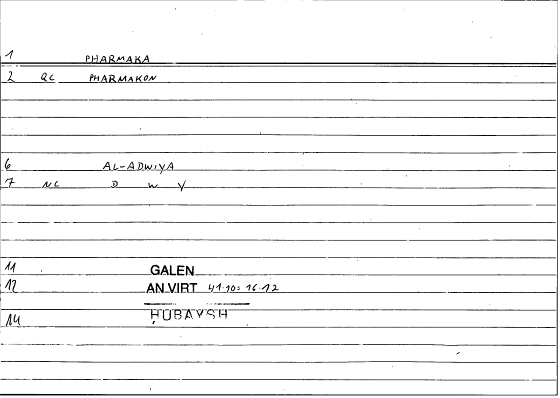 1 PHARMAKA
2 QC PHARMAKON
6 AL-ADWIYA
7 NC D W Y
11 GALEN
12 AN VIRT 41.10 = 16.12
14 ḤUBAYSH